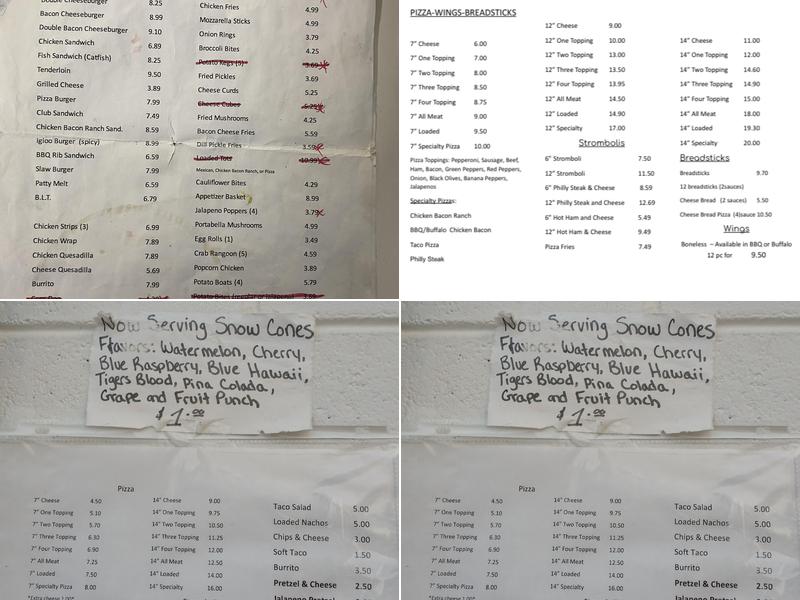 Double Cheeseburger 8.25
Bacon Cheeseburger 9.10
Double Bacon Cheeseburger
Chicken Sandwich 6.89
Fish Sandwich (Catfish) 8.25
Tenderloin 9.50
Grilled Cheese 3.89
Pizza Burger 7.99
Club Sandwich 7.49
Chicken Bacon Ranch Sand. 8.59
Igloo Burger (spicy) 8.99
BBQ Rib Sandwich 6.59
Slaw Burger 7.99
Patty Melt 6.59
B.L.T. 6.79
Chicken Strips (3) 6.99
Chicken Wrap 7.89
Chicken Quesadilla 7.89
Cheese Quesadilla 5.69
Burrito 7.99
Chicken Fries 4.99
Mozzarella Sticks 4.99
Onion Rings 3.79
Broccoli Bites 4.25
Potato Kegs (5) 3.69
Fried Pickles 3.69
Cheese Curds 5.25
Cheese Cubes 5.25
Fried Mushrooms 4.25
Bacon Cheese Fries 5.59
Dill Pickle Fries 3.59
Loaded Tots 10.99
Mexican, Chicken Bacon Ranch, or Pizza
Cauliflower Bites 4.29
Appetizer Basket 8.99
Jalapeno Poppers (4) 3.79
Portabella Mushrooms 4.99
Egg Rolls (1) 3.49
Crab Rangoon (5) 4.59
Popcorn Chicken 3.89
Potato Boats (4) 5.79
Potato Bites (regular or Jalapeno) 3.89
PIZZA-WINGS-BREADSTICKS
7" Cheese 6.00
7" One Topping 7.00
7" Two Topping 8.00
7" Three Topping 8.50
7" Four Topping 8.75
7" All Meat 9.00
7" Loaded 9.50
7" Specialty Pizza 10.00
Pizza Toppings: Pepperoni, Sausage, Beef,
Ham, Bacon, Green Peppers, Red Peppers,
Onion, Black Olives, Banana Peppers,
Jalapenos
Specialty Pizzas:
Chicken Bacon Ranch
BBQ/Buffalo Chicken Bacon
Taco Pizza
Philly Steak
12" Cheese 9.00
12" One Topping 10.00
12" Two Topping 13.00
12" Three Topping 13.50
12" Four Topping 13.95
12" All Meat 14.50
12" Loaded 14.90
12" Specialty 17.00
Strombolis
6" Stromboli 7.50
12" Stromboli 11.50
6" Philly Steak & Cheese 8.59
12" Philly Steak and Cheese 12.69
6" Hot Ham and Cheese 5.49
12" Hot Ham & Cheese 9.49
Pizza Fries 7.49
14" Cheese 11.00
14" One Topping 12.00
14" Two Topping 14.60
14" Three Topping 14.90
14" Four Topping 15.00
14" All Meat 18.00
14" Loaded 19.30
14" Specialty 20.00
Breadsticks
Breadsticks 9.70
12 breadsticks (2sauces)
Cheese Bread (2 sauces) 5.50
Cheese Bread Pizza (4)sauce 10.50
Wings
Boneless – Available in BBQ or Buffalo
12 pc for 9.50
Now Serving Snow Cones
Flavors: Watermelon, Cherry,
Blue Raspberry, Blue Hawaii,
Tigers Blood, Pina Colada,
Grape and Fruit Punch
$1.00
Pizza
7" Cheese 4.50
7" One Topping 5.10
7" Two Topping 5.70
7" Three Topping 6.30
7" Four Topping 6.90
7" All Meat 7.25
7" Loaded 7.50
7" Specialty Pizza 8.00
*Extra cheese 1.00*
14" Cheese 9.00
14" One Topping 9.75
14" Two Topping 10.50
14" Three Topping 11.25
14" Four Topping 12.00
14" All Meat 12.50
14" Loaded 14.00
14" Specialty 16.00
Taco Salad 5.00
Loaded Nachos 5.00
Chips & Cheese 3.00
Soft Taco 1.50
Burrito 3.50
Pretzel & Cheese 2.50
Jalapeno Pretzel
Now Serving Snow Cones
Flavors: Watermelon, Cherry,
Blue Raspberry, Blue Hawaii,
Tigers Blood, Pina Colada,
Grape and Fruit Punch
$1.00
Pizza
7" Cheese 4.50
7" One Topping 5.10
7" Two Topping 5.70
7" Three Topping 6.30
7" Four Topping 6.90
7" All Meat 7.25
7" Loaded 7.50
7" Specialty Pizza 8.00
*Extra cheese 1.00*
14" Cheese 9.00
14" One Topping 9.75
14" Two Topping 10.50
14" Three Topping 11.25
14" Four Topping 12.00
14" All Meat 12.50
14" Loaded 14.00
14" Specialty 16.00
Taco Salad 5.00
Loaded Nachos 5.00
Chips & Cheese 3.00
Soft Taco 1.50
Burrito 3.50
Pretzel & Cheese 2.50
Jalapeno Pretzel